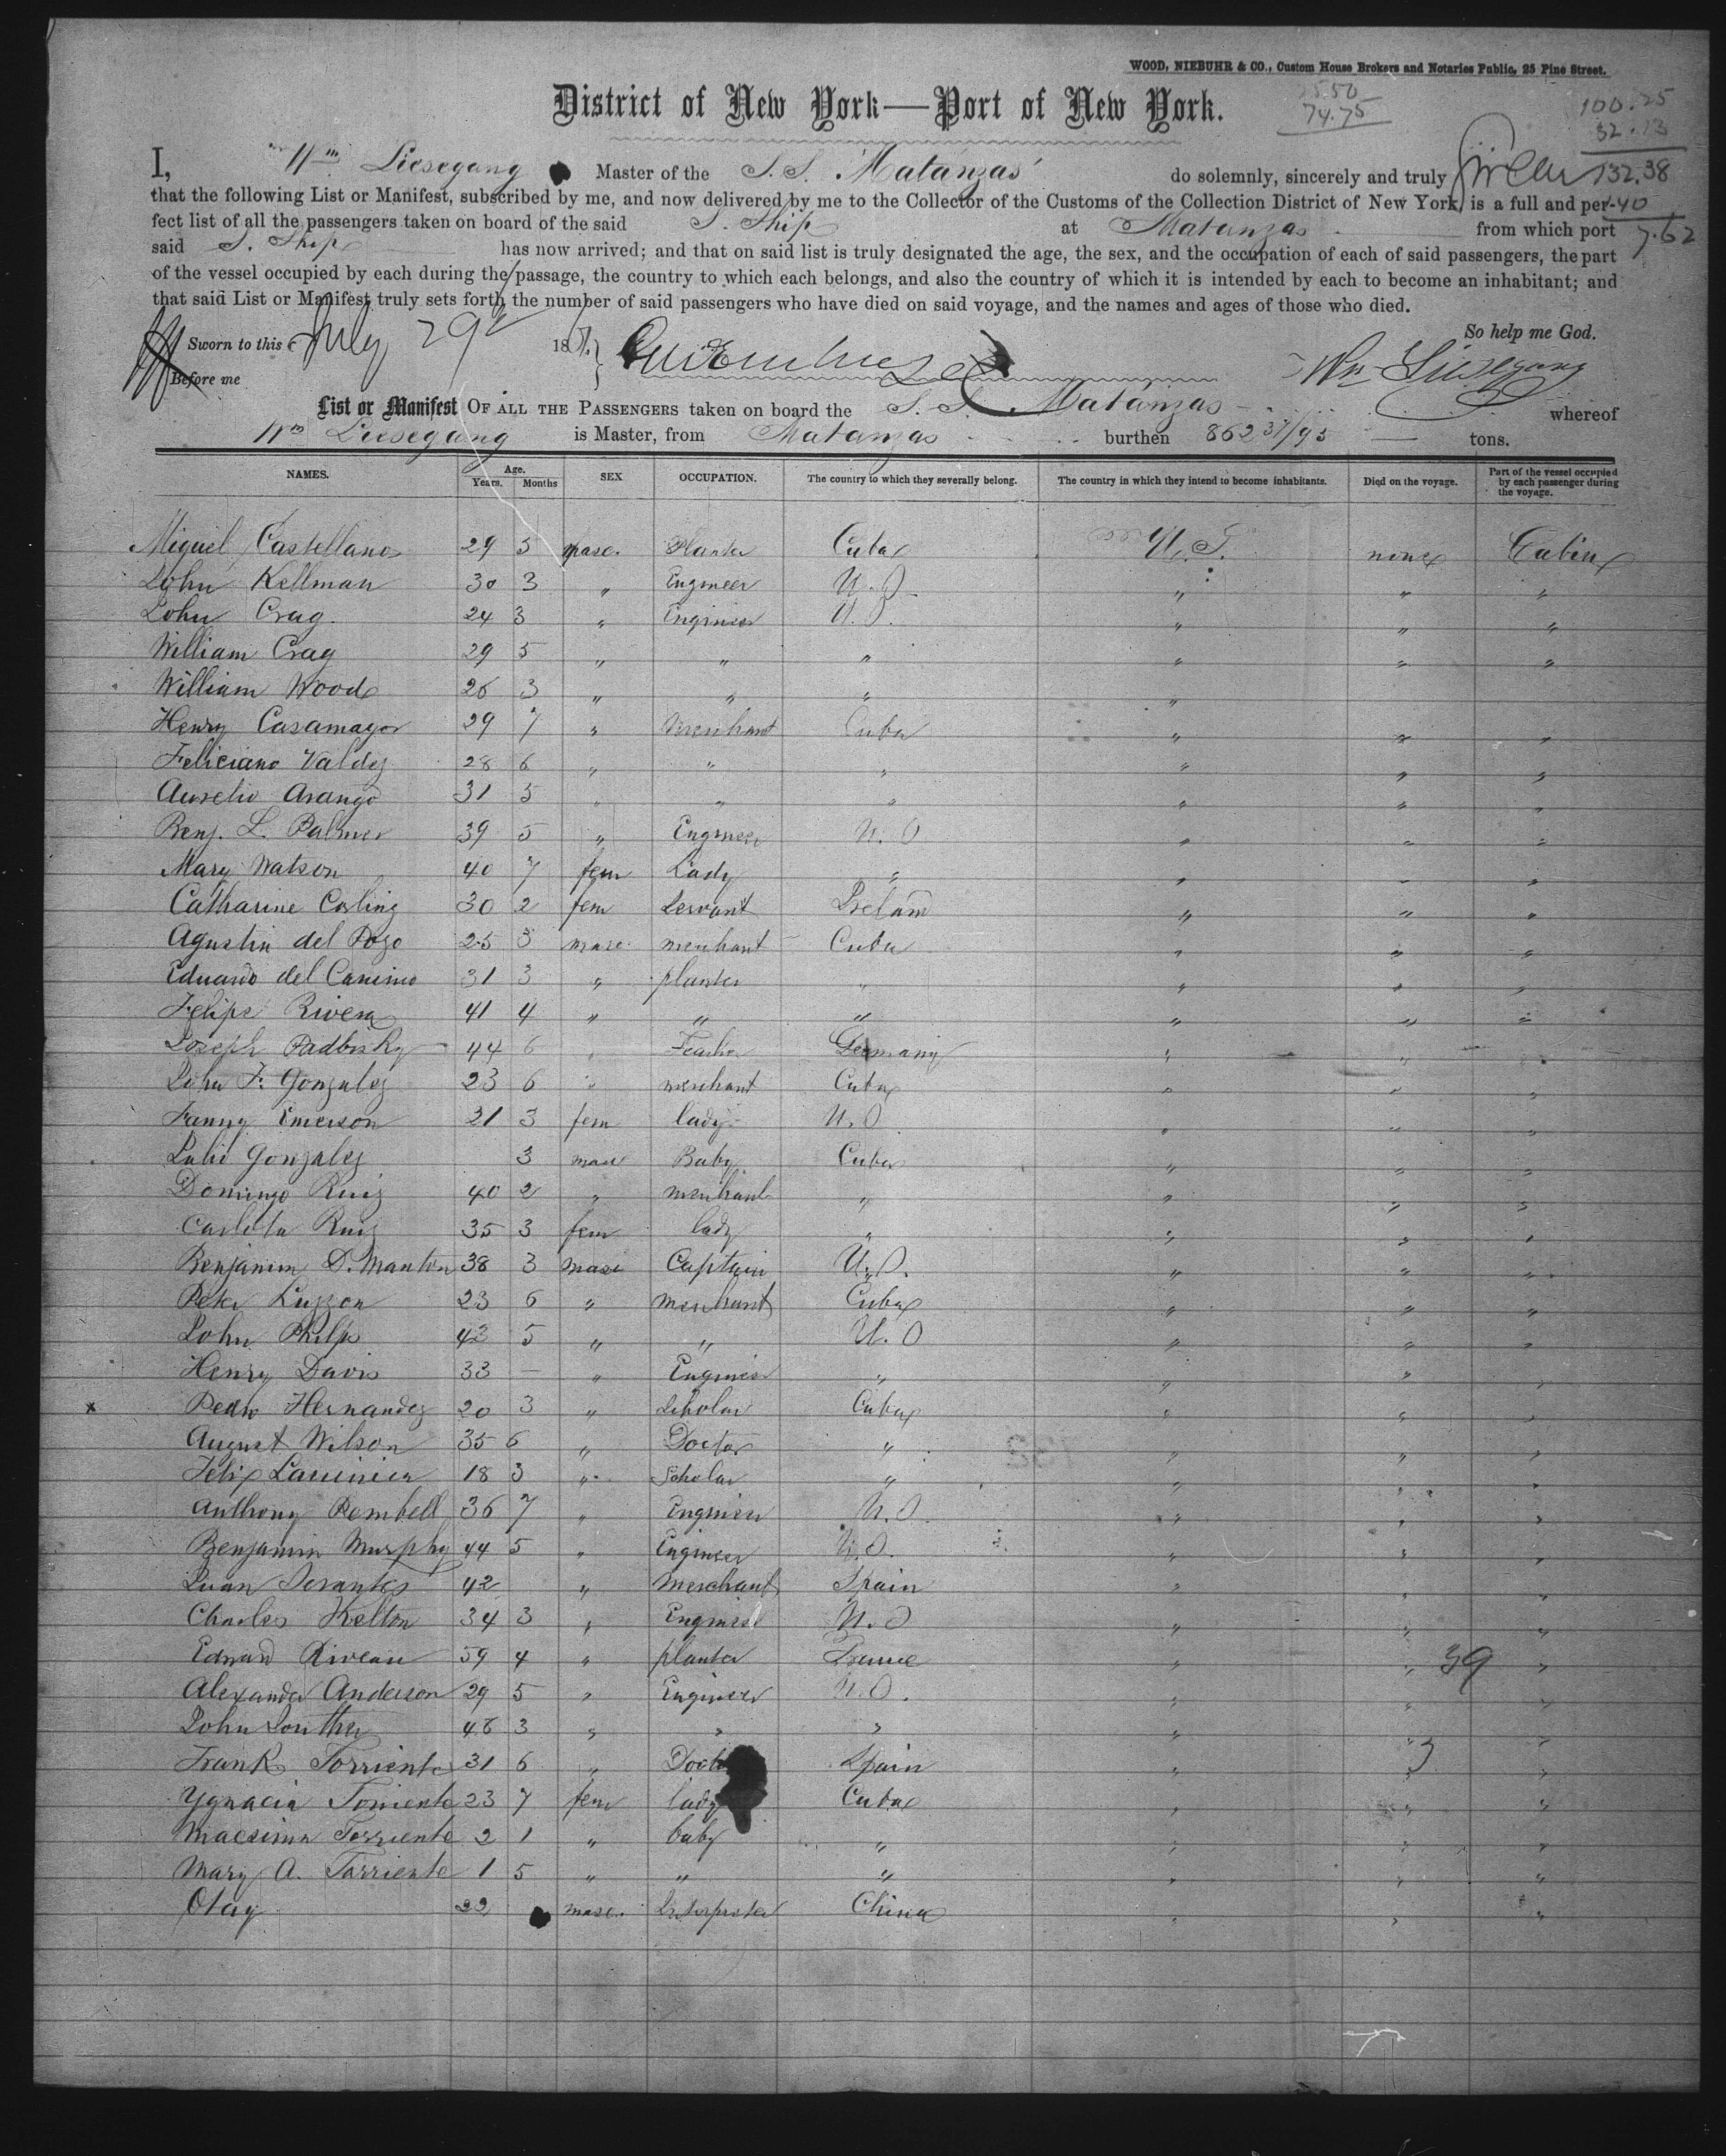 WOOD, NIEBUHR & CO., Custom House Brokers and Notaries Public, 25 Pine Street.
District of New York—Port of New York.
74.75
100.25
32.13
132.38
I, Wm Liesegang Master of the S.S. Matanzas do solemnly, sincerely and truly
that the following List or Manifest, subscribed by me, and now delivered by me to the Collector of the Customs of the Collection District of New York, is a full and per-
fect list of all the passengers taken on board of the said S. Ship at Matanzas from which port
said S. Ship has now arrived; and that on said list is truly designated the age, the sex, and the occupation of each of said passengers, the part
of the vessel occupied by each during the passage, the country to which each belongs, and also the country of which it is intended by each to become an inhabitant; and
that said List or Manifest truly sets forth the number of said passengers who have died on said voyage, and the names and ages of those who died.
So help me God.
Sworn to this July 29 18
Before me
Wm Liesegang
List or Manifest OF ALL THE PASSENGERS taken on board the S. S. Matanzas whereof
Wm Liesegang is Master, from Matanzas burthen 862 37/95 tons.
NAMES. Age. Years. Months SEX OCCUPATION. The country to which they severally belong. The country in which they intend to become inhabitants. Died on the voyage. Part of the vessel occupied by each passenger during the voyage.
Miguel Castellanos 29 5 masc. Planter Cuba U. S. none Cabin
John Kellman 30 3 " Engineer U. S. " " "
John Crag. 24 3 " Engineer U. S. " " "
William Crag 29 5 " " " " " "
William Wood 26 3 " " " "
Henry Casamayor 29 7 " Merchant Cuba " " "
Feliciano Valdez 28 6 " " " " " "
Aurelio Arango 31 5 " " " " " "
Benj. L. Palmer 39 5 " Engineer U. S. " " "
Mary Watson 40 7 fem Lady " " " "
Catharine Carling 30 2 fem Servant Ireland " " "
Agustin del Pozo 25 3 masc. merchant Cuba " " "
Eduardo del Camino 31 3 " planter " " " "
Felipe Rivera 41 4 " " " " " "
Joseph Padbisky 44 6 " Teacher Germany " " "
John F. Gonzalez 23 6 " merchant Cuba " " "
Fanny Emerson 21 3 fem lady U. S. " " "
Julio Gonzalez 3 masc Baby Cuba " " "
Domingo Ruiz 40 2 " merchant " " " "
Carlota Ruiz 35 3 fem lady " " " "
Benjamin D. Manton 38 3 masc Captain U. S. " " "
Peter Luzzon 23 6 " merchant Cuba " " "
John Philps 43 5 " " U. S " " "
Henry Davis 33 — " Engineer " " " "
x Pedro Hernandez 20 3 " Scholar Cuba " " "
August Wilson 35 6 " Doctor " " " "
Felix 18 3 " Scholar " " " "
Anthony Pembell 36 7 " Engineer U. S. " " "
Benjamin Murphy 44 5 " Engineer U. S. " " "
Juan Serantes 42 " Merchant Spain " " "
Charles Kelton 34 3 " Engineer U. S " " "
Edward Riveau 59 4 " planter France " " 39 "
Alexander Anderson 29 5 " Engineer U. S. " " "
John Souther 48 3 " " " " " "
Frank Torriente 31 6 " Doctor Spain " " 3 "
Ygnacia Torriente 23 7 fem lady Cuba " " "
Macsima Torriente 2 1 " baby " " " "
Mary A. Torriente 1 5 " " " " " "
Otay 22 masc. Interpreter China " " "